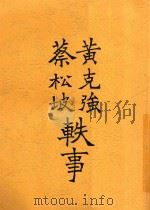 黃克強
蔡松坡
軼事
mtoou.info